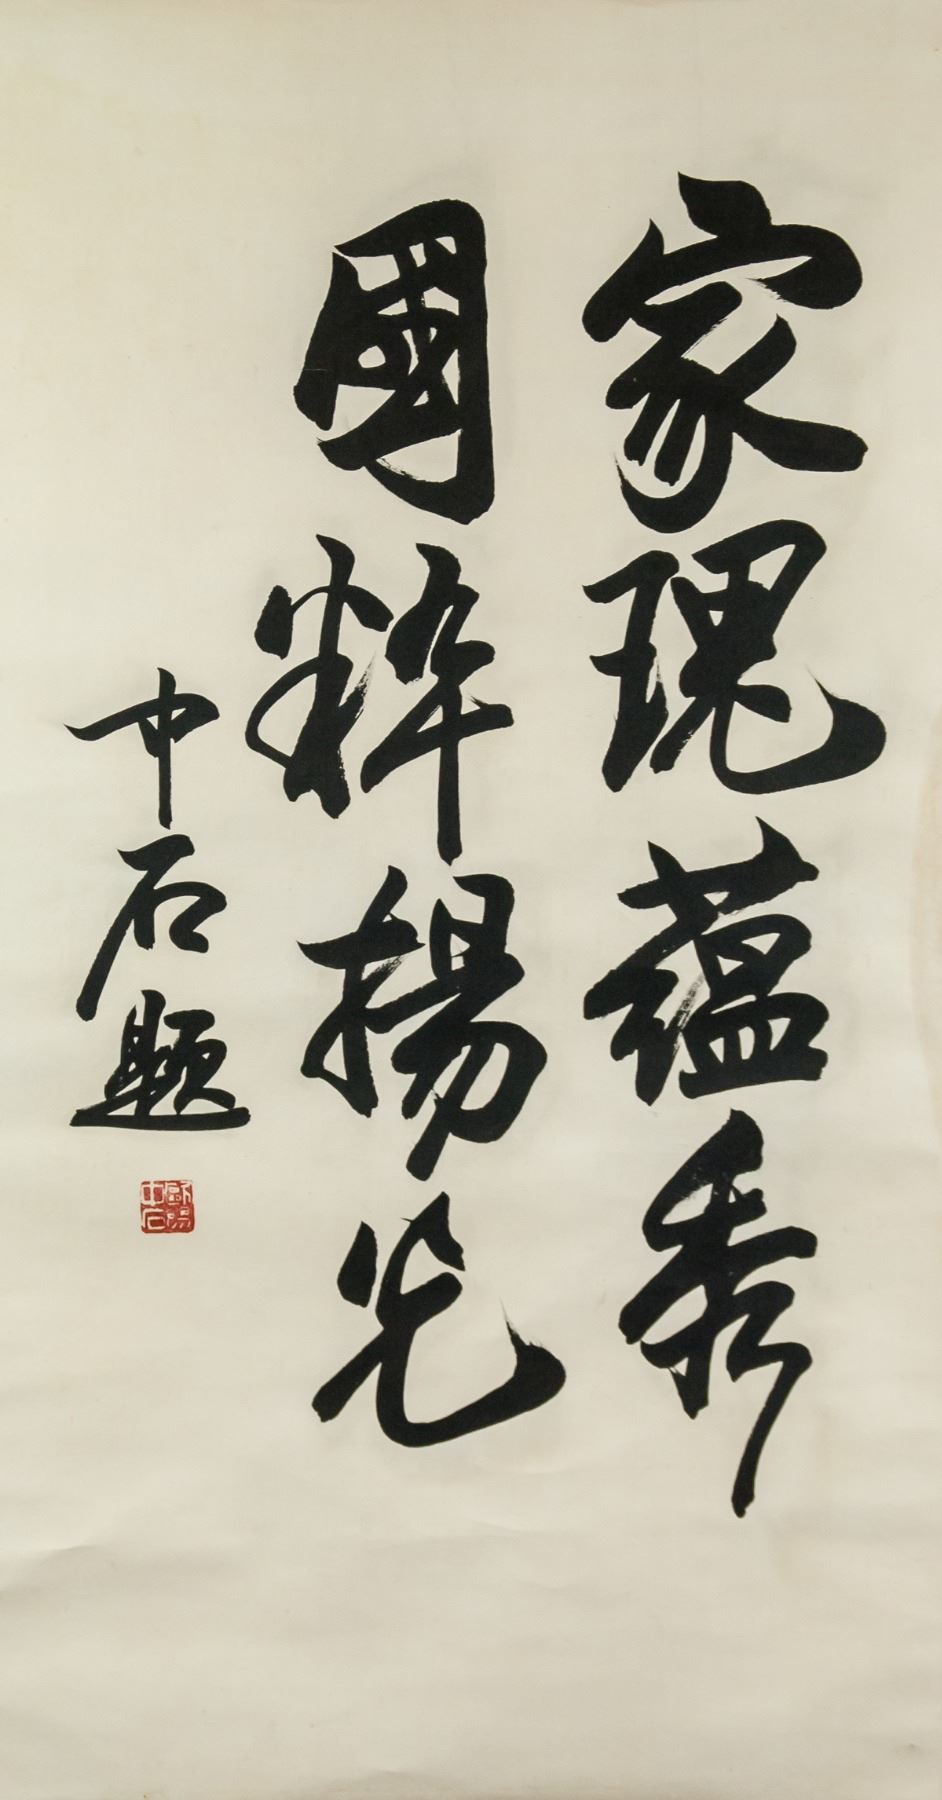 家瑰蘊秀
國粹揚光
中石題
歐陽中石